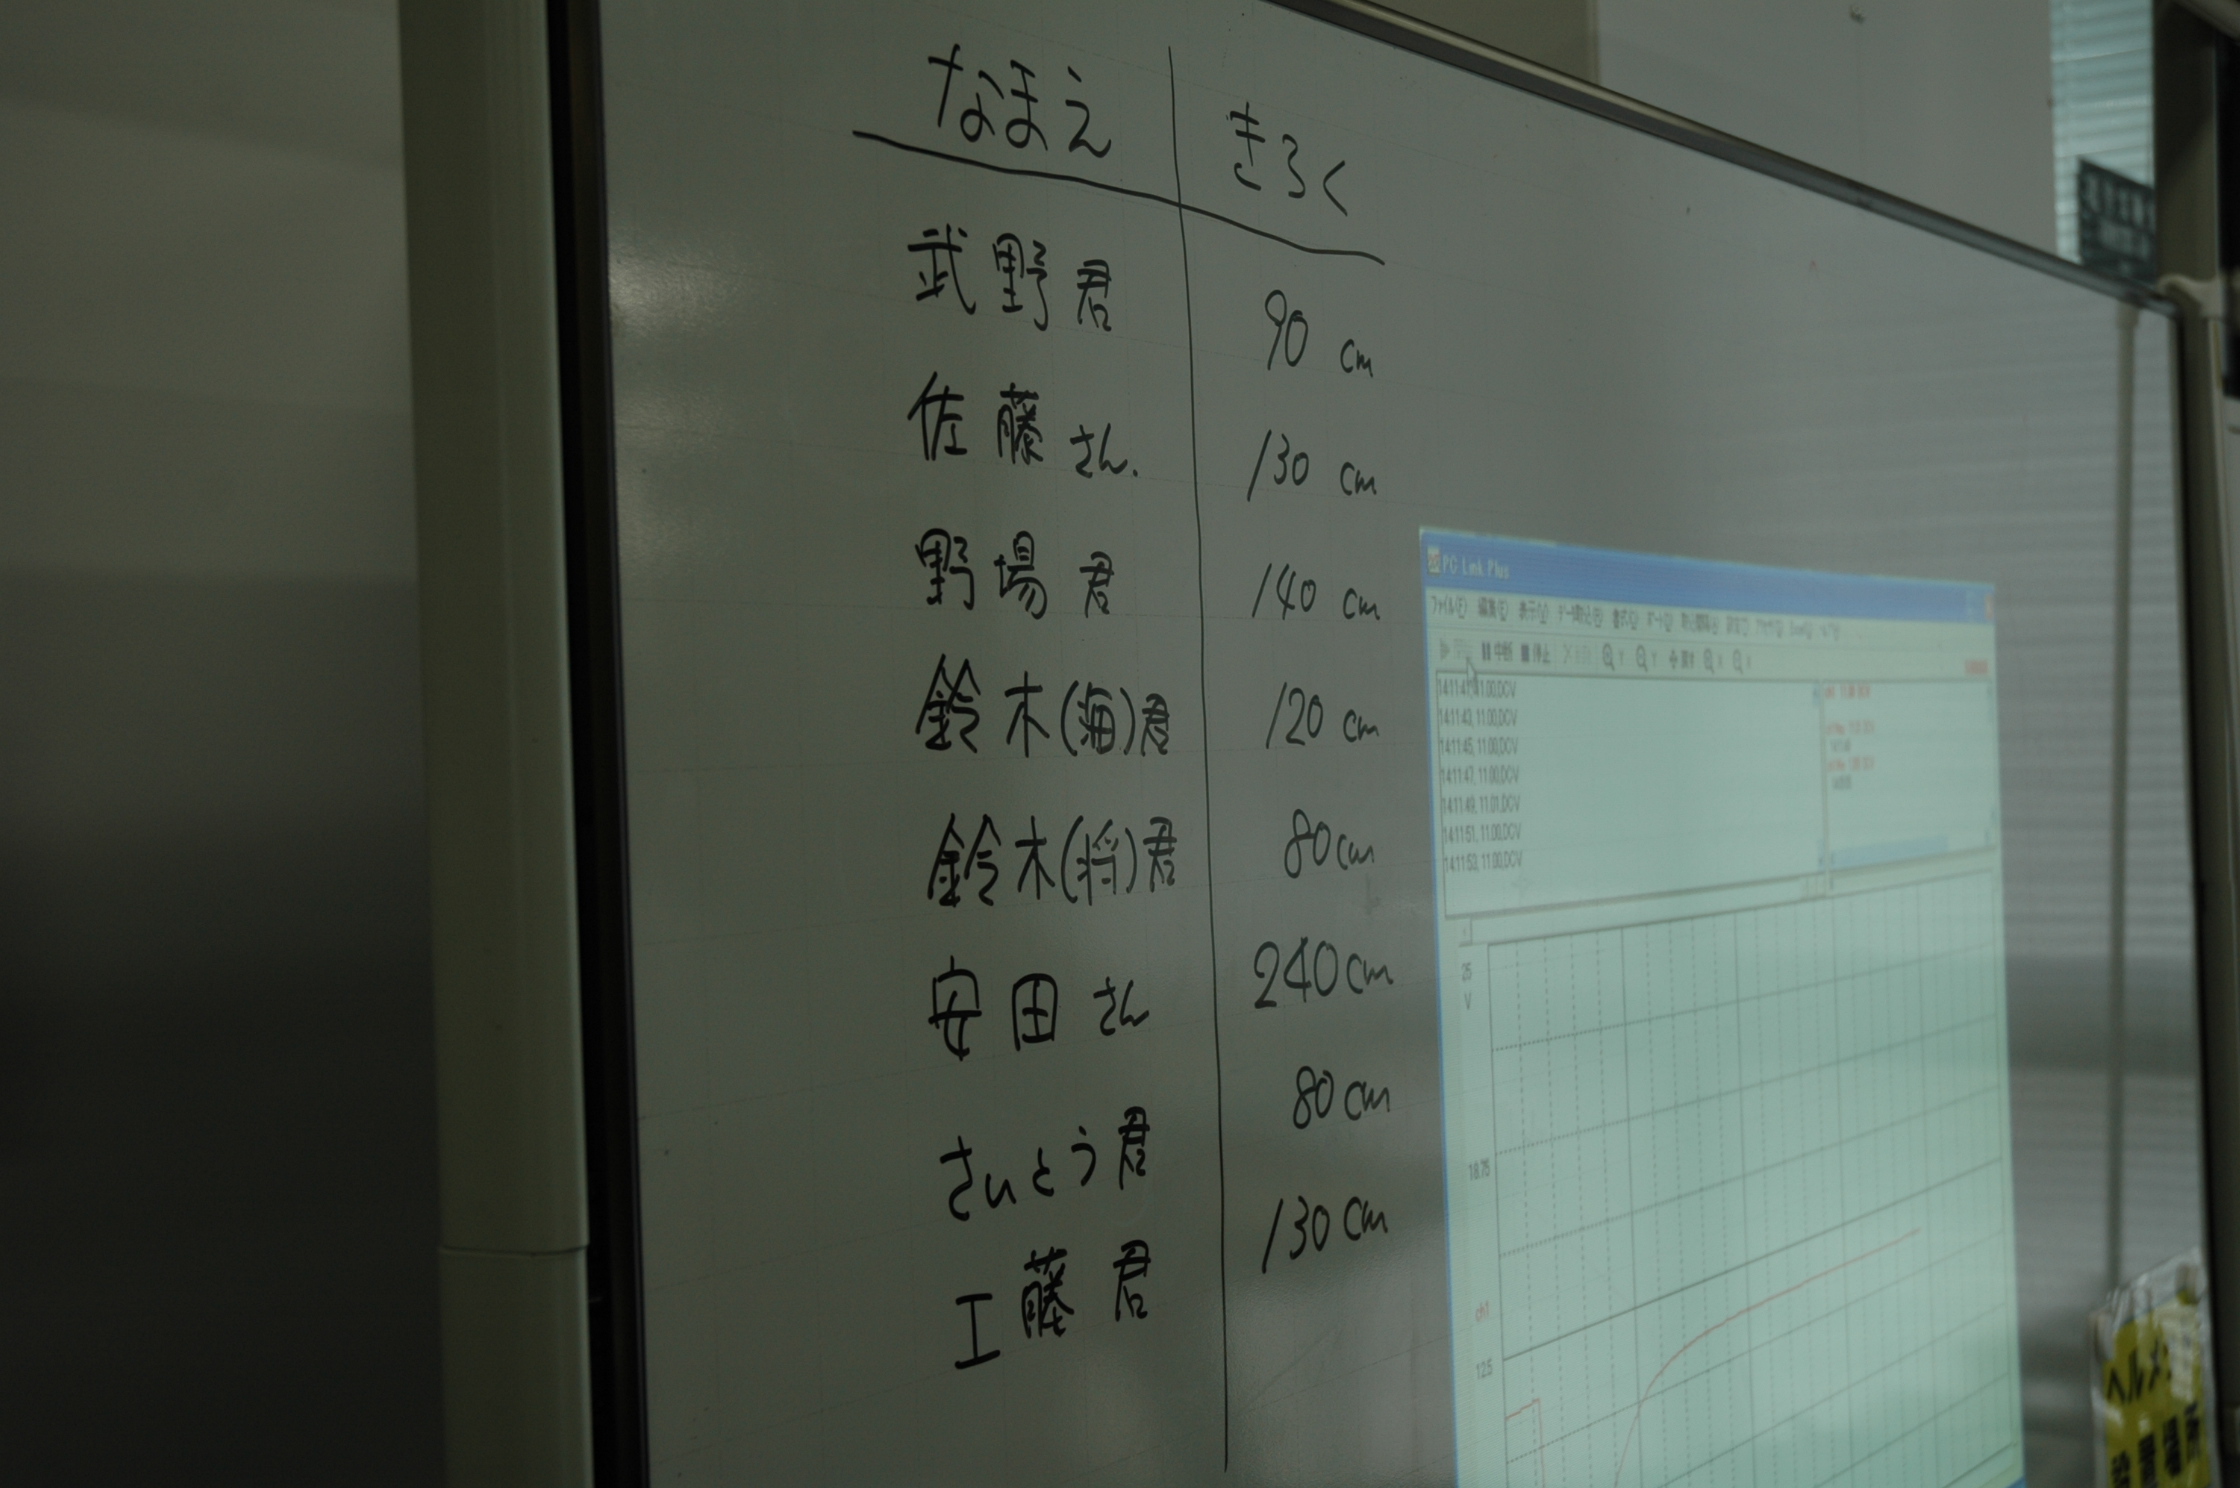 なまえ きろく
武野君 90 cm
佐藤さん. 130 cm
野場君 140 cm
鈴木(海)君 120 cm
鈴木(将)君 80cm
安田さん 240cm
さいとう君 80cm
工藤君 130cm
PC Link Plus
ファイル(F) 編集(E) 表示(V)
中断 停止
14:11:43, 11.00,DCV
14:11:45, 11.00,DCV
14:11:47, 11.00,DCV
14:11:49, 11.01,DCV
14:11:51, 11.00,DCV
14:11:53, 11.00,DCV
25
V
18.75
ch1
12.5
ヘルメ
設置場所